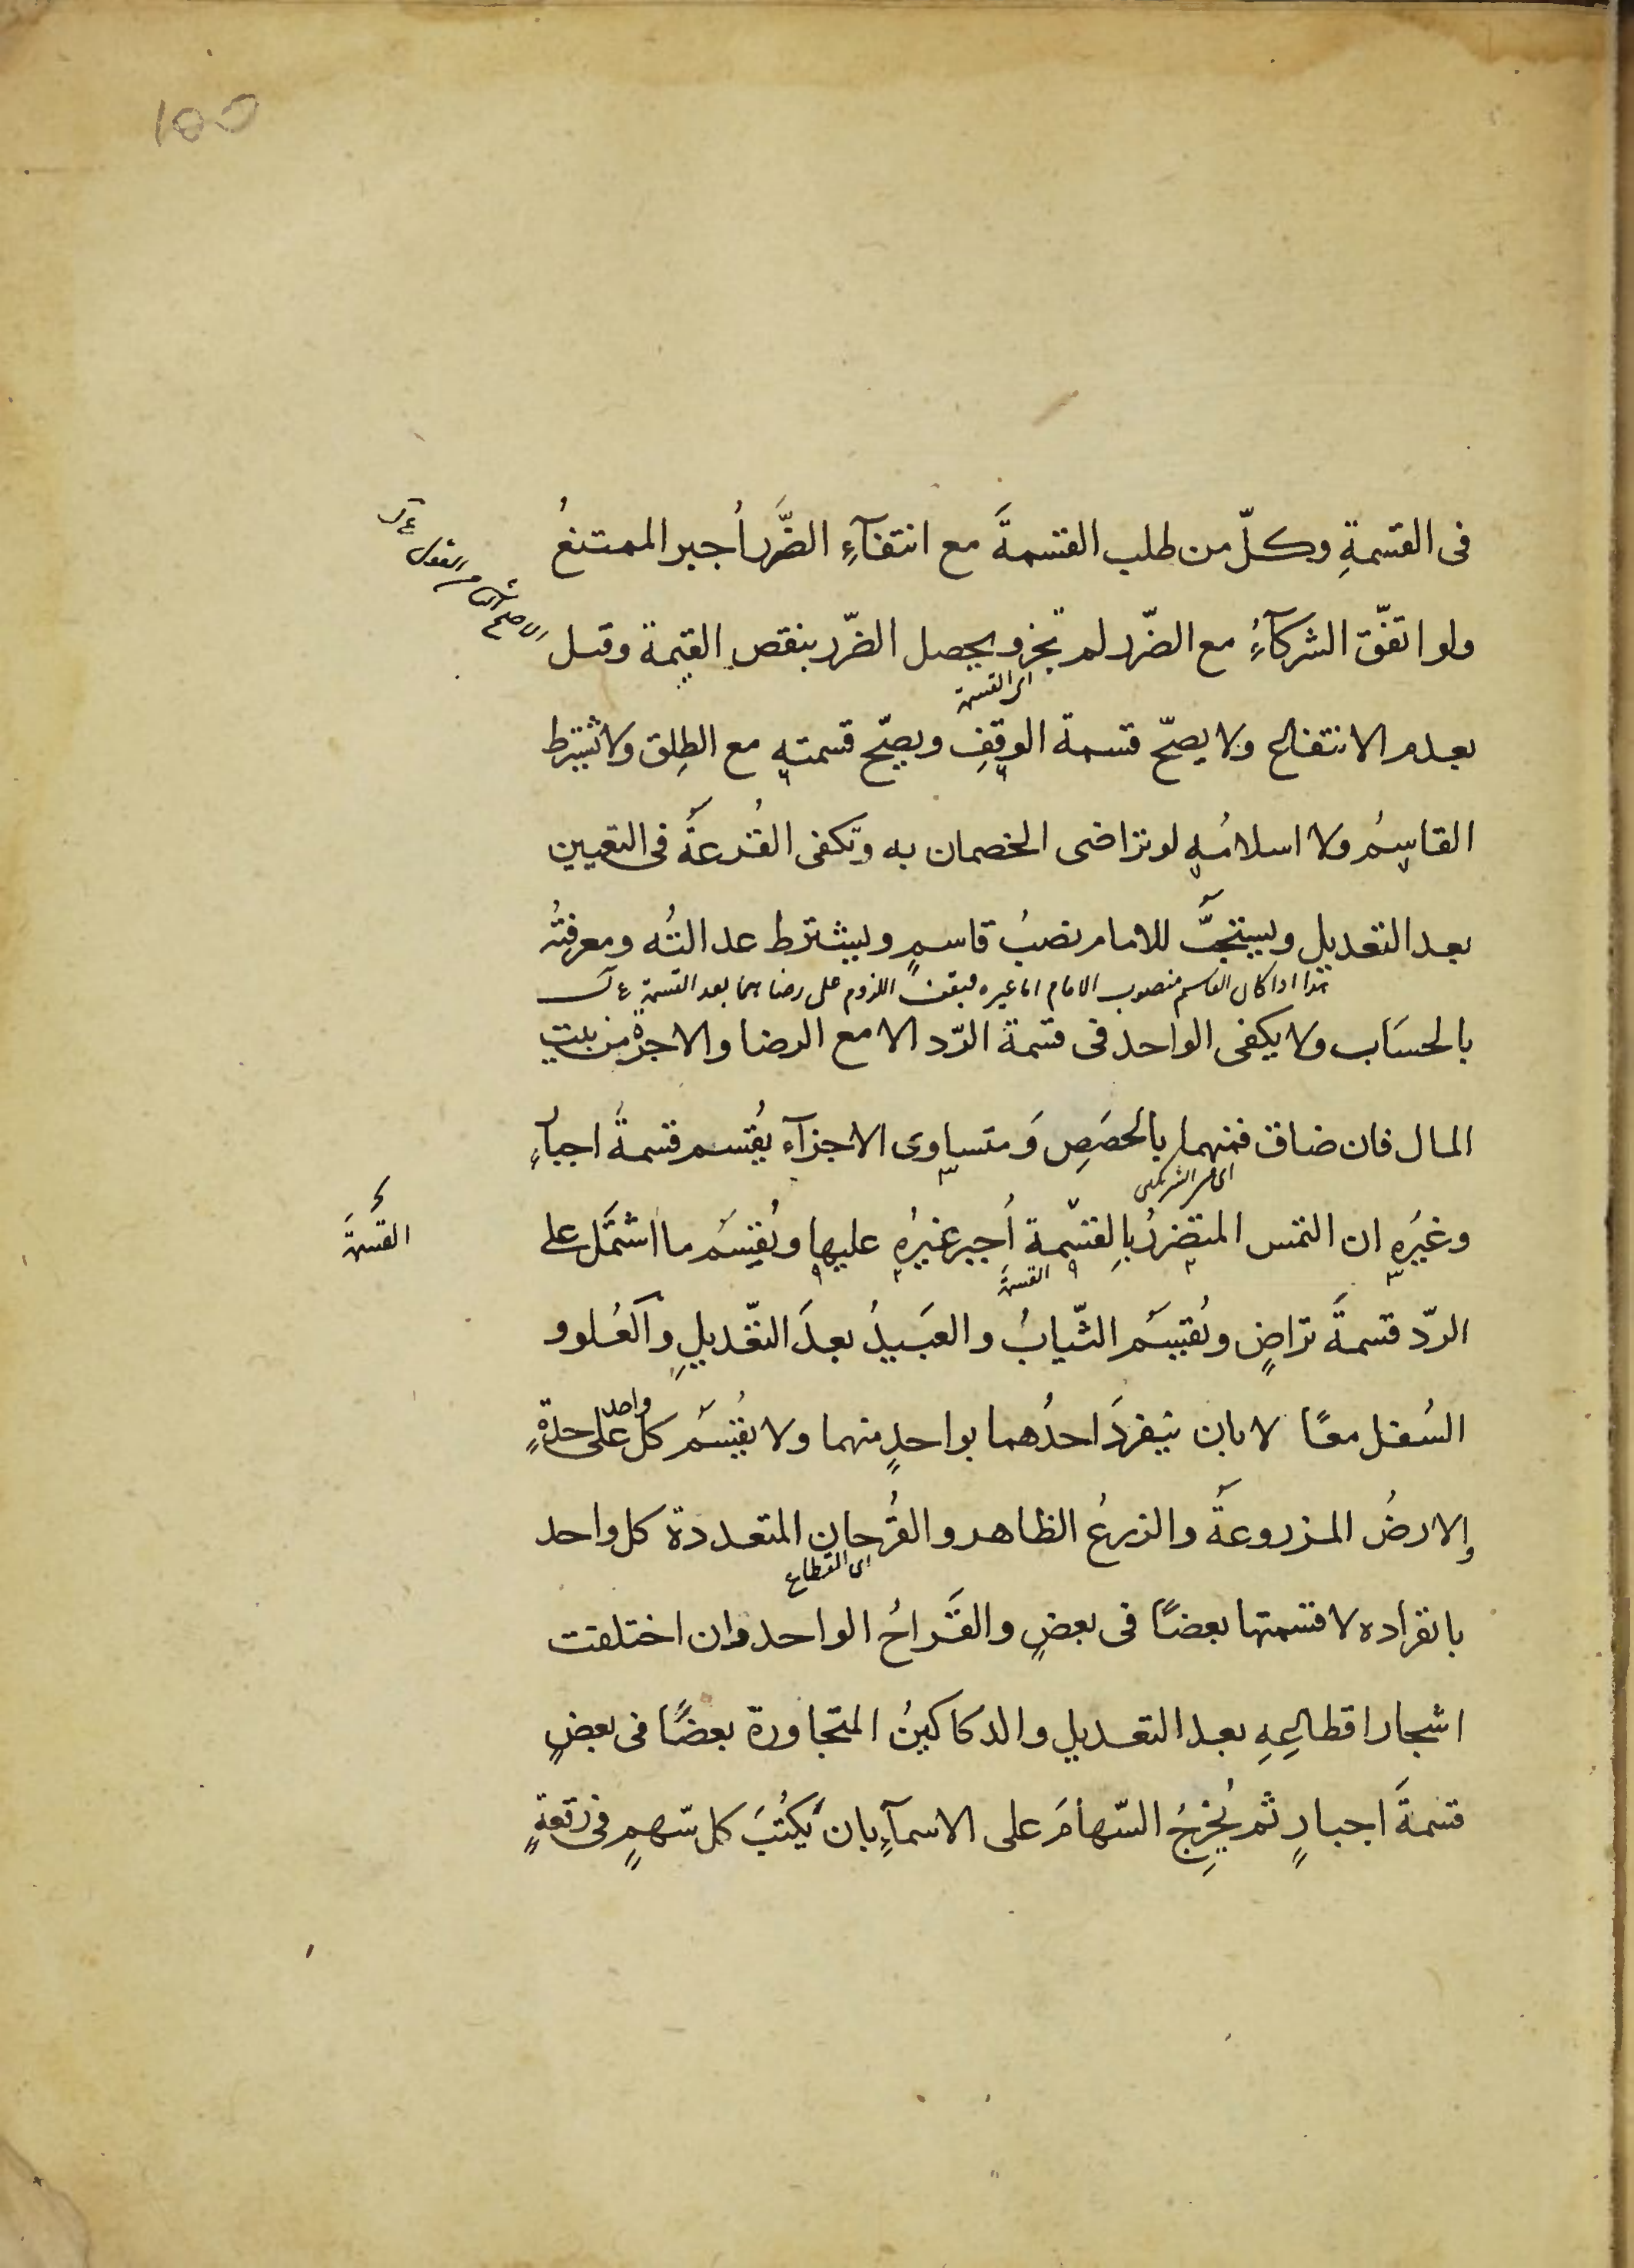 ١٥٥
فى القسمةِ وكلّ من طلب القسمةَ مع انتفآءِ الضَّرر أُجبر الممتنعُ
ولو اتفّق الشركآءُ مع الضّرر لم تجز ويحصل الضّرر بنقص القيمة وقيل
اى القسمة
بعدم الانتفاع ولا يصحّ قسمة الوقفِ ويصحّ قسمته مع الطِلق ولا يشترط
القاسِمُ ولا اسلامُه لو تراضى الخصمان به وتكفى القُرعةُ فى التعيين
بعد التعديل ويستحبُّ للامام نصبُ قاسمٍ ويشترط عدالتُه ومعرفتُه
هذا اذا كان القاسم منصوب الامام اما غيره فيقف اللزوم على رضاهما بعد القسمة
بالحسَاب ولا يكفى الواحد فى قسمة الرّد الا مع الرضا والاجرة من بيتِ
المال فان ضاق فمنهما بالحصَصِ وَمتساوى الاجزآء يُقسم قسمةَ اجبارٍ
اى من الشريكين
وغيرُه ان التمس المتضررُ بالقسْمة أُجبر غيرُه عليها ويُقسَم ما اشتمَل على
القسمةَ
القسمة
الردّ قسمةَ تراضٍ ويُقسَم الثّيابُ والعَبيدُ بعدَ التّعديلِ والعُلو و
السُفل معًا لا بان ينفردَ احدُهما بواحدٍ منهما ولا يُقسَمُ كل واحد على حدةٍ
والارضُ المزروعةُ والزرعُ الظاهر والقُرحان المتعددة كل واحد
اى القطاع
بانفراده لا قسمتها بعضًا فى بعضٍ والقَراحُ الواحد وان اختلفت
اشجار اقطاعِهِ بعد التعديل والدكاكينُ المتجاورة بعضًا فى بعضٍ
قسمةَ اجبارٍ ثم يُخرِجُ السّهامَ على الاسمآءِ بان يَكتُبَ كل سّهمٍ فى رقعةٍ